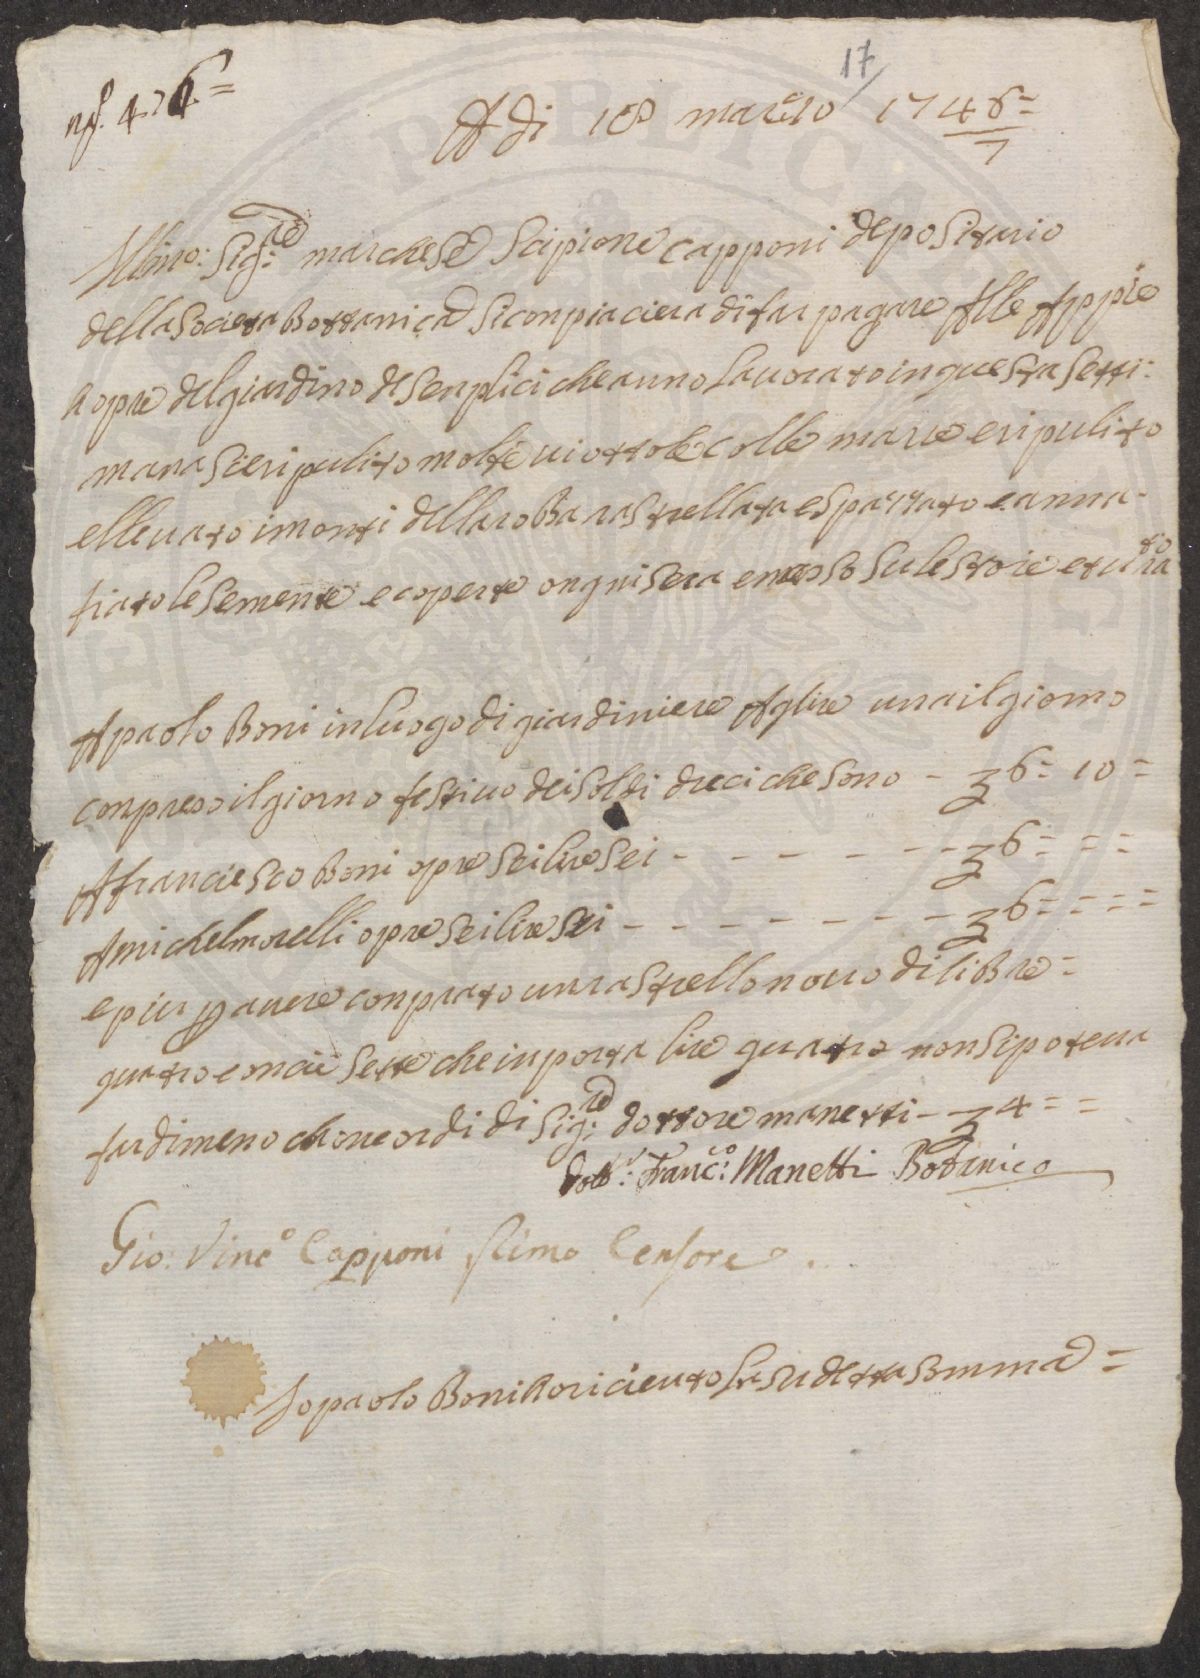 17
nº. 476=
A di 18 marzo 1746=
7
Illmo: Sig:re marchese Scipione Capponi depositario
della Societa Bottanica si conpiaciera di far pagare Alle Appie
hopre del giardino de senplici che anno Lavorato in questa setti:
mana sie ripulito molte viottole colle marre e ripulito
ellevato i monti della roba rastrellata e spazzato e anna-
fiato le semente e coperte ongni sera e messo su le stoie e tirato
A paolo Boni in luogo di giardiniere A lire una il giorno
conpreso il giorno festivo dei soldi dieci che sono - £ 6= 10=
A franciesco Boni opre sei lire sei - - - - - - - £ 6= = =
A michel morelli opre sei lire sei - - - - - - - - £ 6= = = =
e piu p avere conprato un rastrello novo di libre=
quatro e oncie sette che inporta lire quatro non si poteva
far di meno chon eordi di Sig:re dottore manetti - £ 4= =
Dott: Francº: Manetti Botanico
Gio: Vincº Capponi stimo Censore.
Io paolo Boni ho ricieuto la su detta somma=
BIBLIOTHECA PUBLICA FLORENTINA